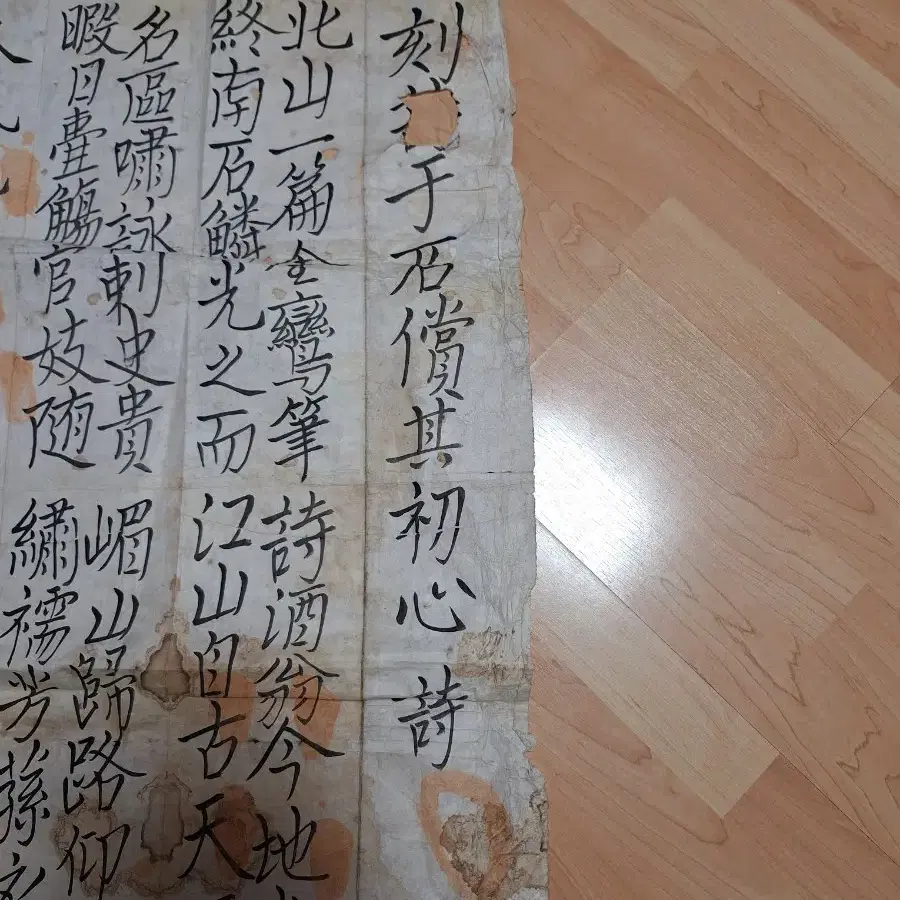 刻于石償其初心 詩
北山一篇全鸞筆 詩酒翁今地
終南石鱗光之而 江山自古天
名區嘯詠刺史貴 嵋山歸路仰
暇日壷觴官妓随 繡襦芳蓀